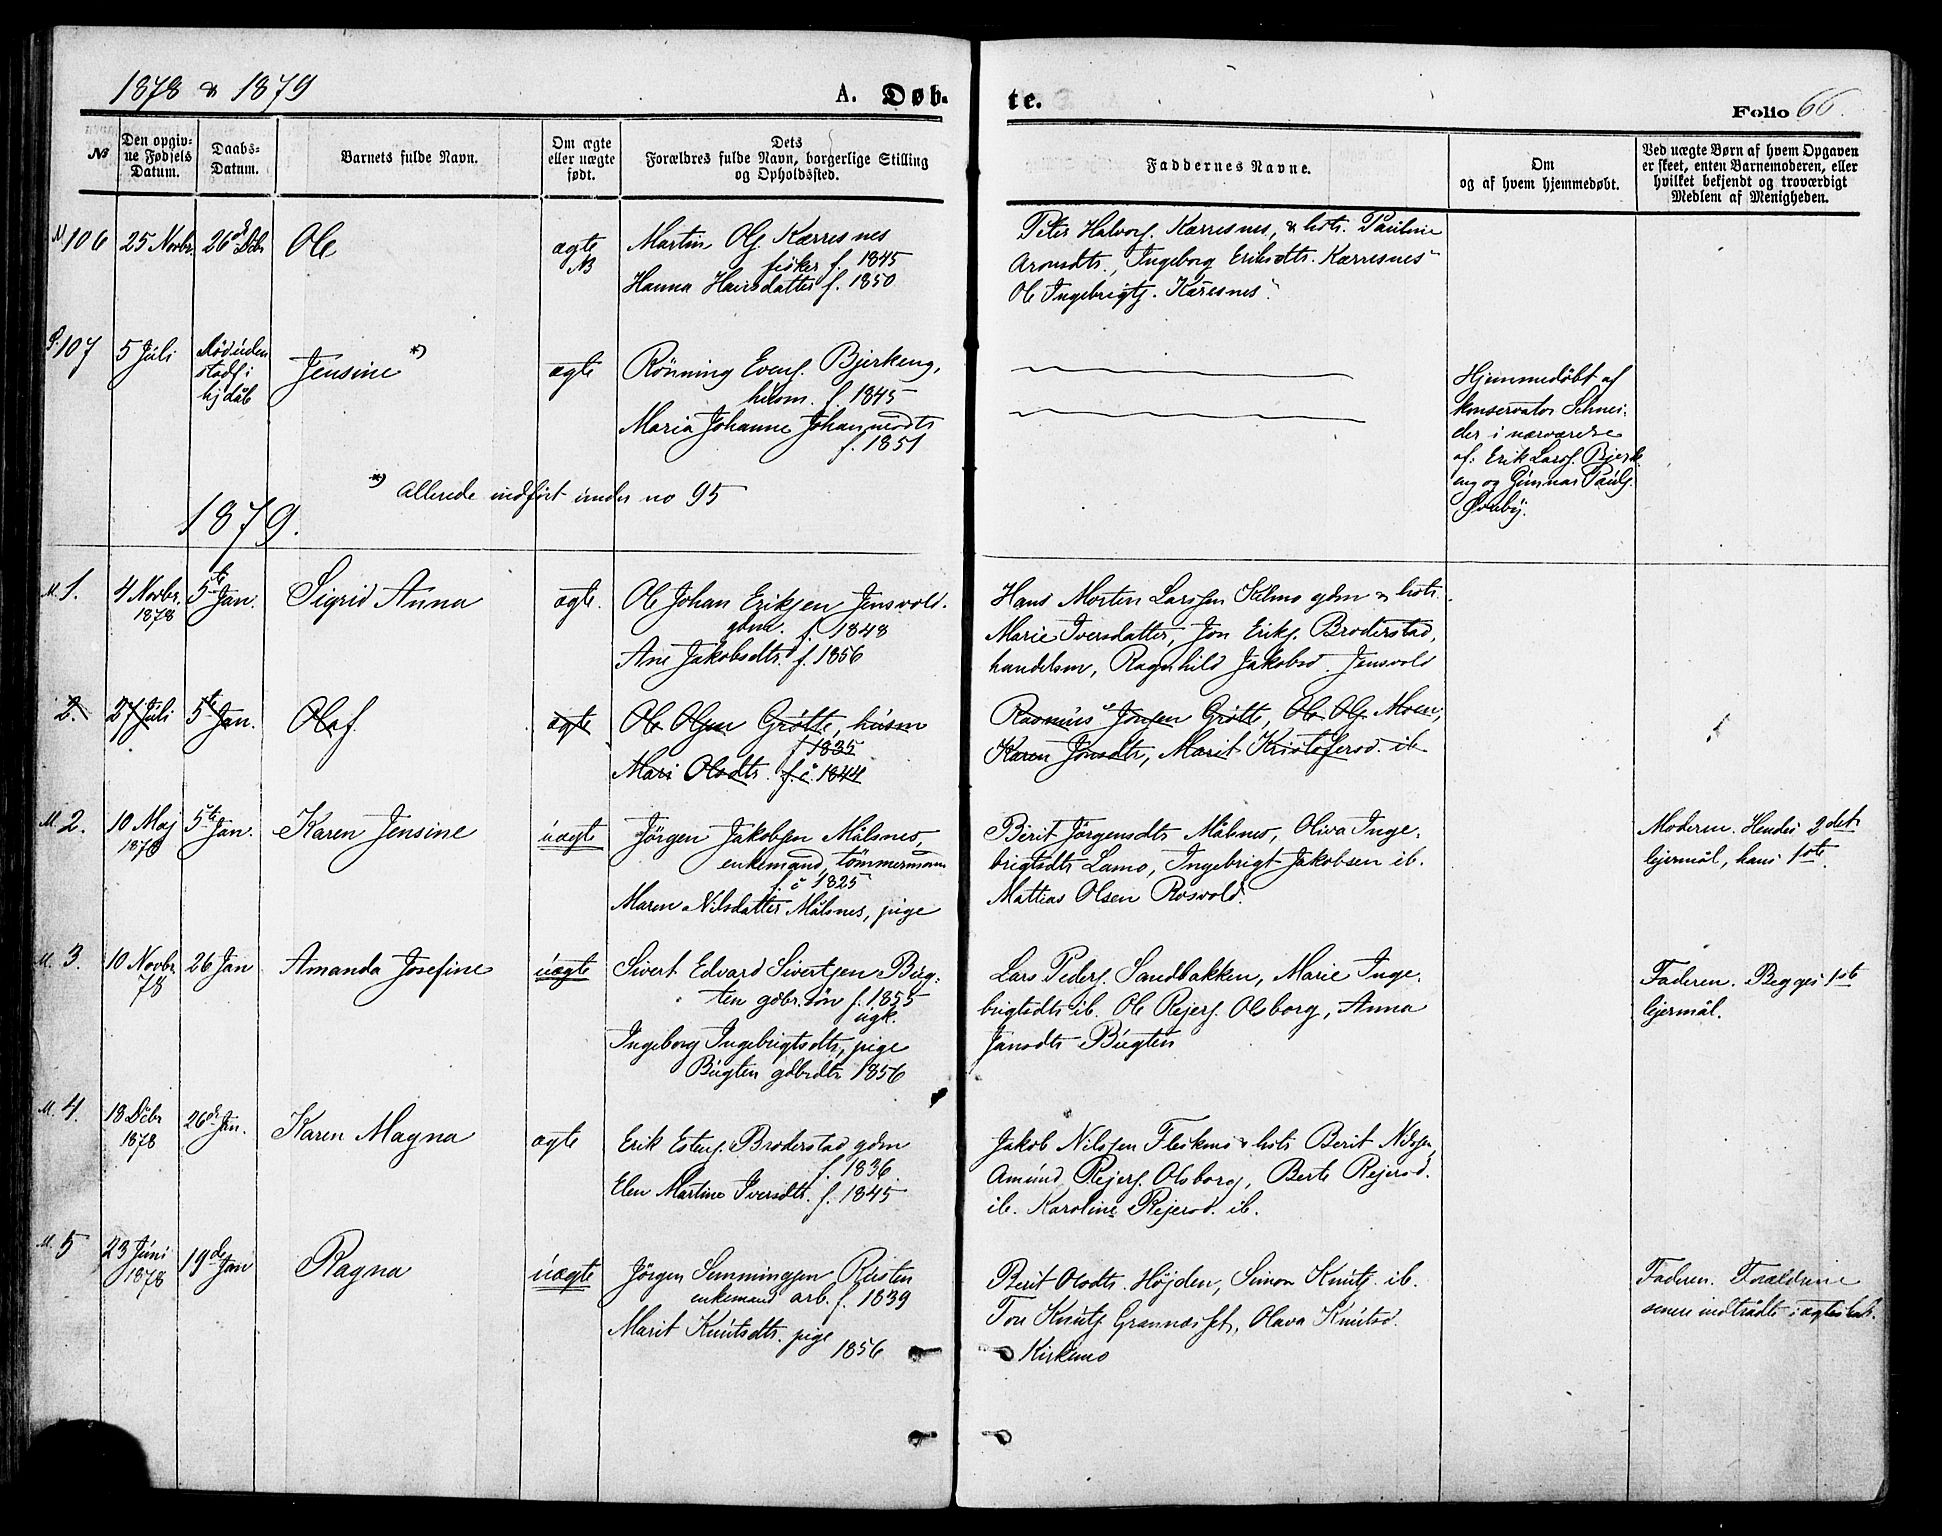 1878 & 1879
A. Døb-
te.
Folio 66.
No
Den opgiv-
ne Fødsels
Datum.
Daabs-
Datum.
Barnets fulde Navn.
Om ægte
eller uægte
født.
Dets
Forældres fulde Navn, borgerlige Stilling
og Opholdssted.
Faddernes Navne.
Om
og af hvem hjemmedøbt.
Ved uægte Børn af hvem Opgaven
er skeet, enten Barnemoderen, eller
hvilket bekjendt og troværdigt
Medlem af Menigheden.
106 25 Novbr. 26 Dcbr Ole ægte
NB
Martin Ols. Kærresnes
fisker f. 1845
Hanna Hansdatter f. 1850
Peter Halvors. Kærresnes, & hstr. Pauline
Aronsdtr., Ingeborg Eriksdtr. Kærresnes
Ole Ingebrigts. Kæresnes.
107 5 Juli
Død uden
stadf:
hjdåb
Jensine *) ægte
Rönning Evens. Bjerkeng,
husm. f. 1845
Maria Johanne Johannesdtr
f. 1851
Hjemmedöbt af
konservator Schnei-
der i nærværelse
af: Erik Larss. Bjerk-
eng og Gunnar Påuls.
Øverby.
*) Allerede indfört under no 95
1879.
M. 1. 4 Novbr.
1878
5te Jan. Sigrid Anna ægte.
Ole Johan Eriksen Jensvold.
gbm. f. 1848
Ane Jakobsdtr. f. 1856
Hans Morten Larssen Kilmo gdm & hstr.
Marie Iversdatter, Jon Eriks. Broderstad,
handelsm, Ragnhild Jakobsd. Jensvold
2. 27 Juli 5te Jan. Olaf ægte
Ole Olsen Grötte, husm
f 1835
Mari Olsdtr. f. c. 1844
Rasmus Jonsen Grötte, Ole Ols. Moen,
Karen Jonsdtr, Marit Kristofersd. ib
M. 2. 10 Maj
1878
5te Jan. Karen Jensine uægte
Jörgen Jakobsen Målsnes,
enkemand, tömmermann
f. c. 1825
Maren Nilsdatter Målsnes, pige
Berit Jörgensdtr Målsnes, Oliva Inge-
brigtsdtr Lamo, Ingebrigt Jakobsen ib.
Mattias Olsen Rosvold.
Moderen. Hendes 2det
lejermål, hans 1ste
M. 3. 10 Novbr.
78
26 Jan Amanda Josefine uægte
Sivert Edvard Sivertsen Bug-
ten gdbr.sön f. 1855
ugk.
Ingeborg Ingebrigtsdtr, pige
Bugten gdbrdtr 1856
Lars Peders. Sandbakken, Marie Inge-
brigtsdtr ib. Ole Rejers. Olsborg, Anna
Jansdtr Bugten
Faderen. Begges 1ste
lejermål.
M. 4. 18 Dcbr
1878
26de Jan. Karen Magna ægte
Erik Estens. Broderstad gdm
f. 1836
Elen Martine Iversdtr. f. 1845
Jakob Nilssen Fleskmo & hstr Berit Nilssen,
Amund Rejers. Olsborg, Berte Rejersd.
ib. Karoline Rejersd. ib.
M. 5 23 Juni
1878
19de Jan Ragna uægte
Jörgen Semmingsen Rusten
enkemand arb. f. 1839
Marit Knutsdtr. pige
1856
Berit Olsdtr. Höjden, Simon Knuts. ib.
Tore Knuts. Grannæsset, Olava Knutsd.
Kirkmo
Faderen. Forældrene
senere indtrådte i ægteskab.